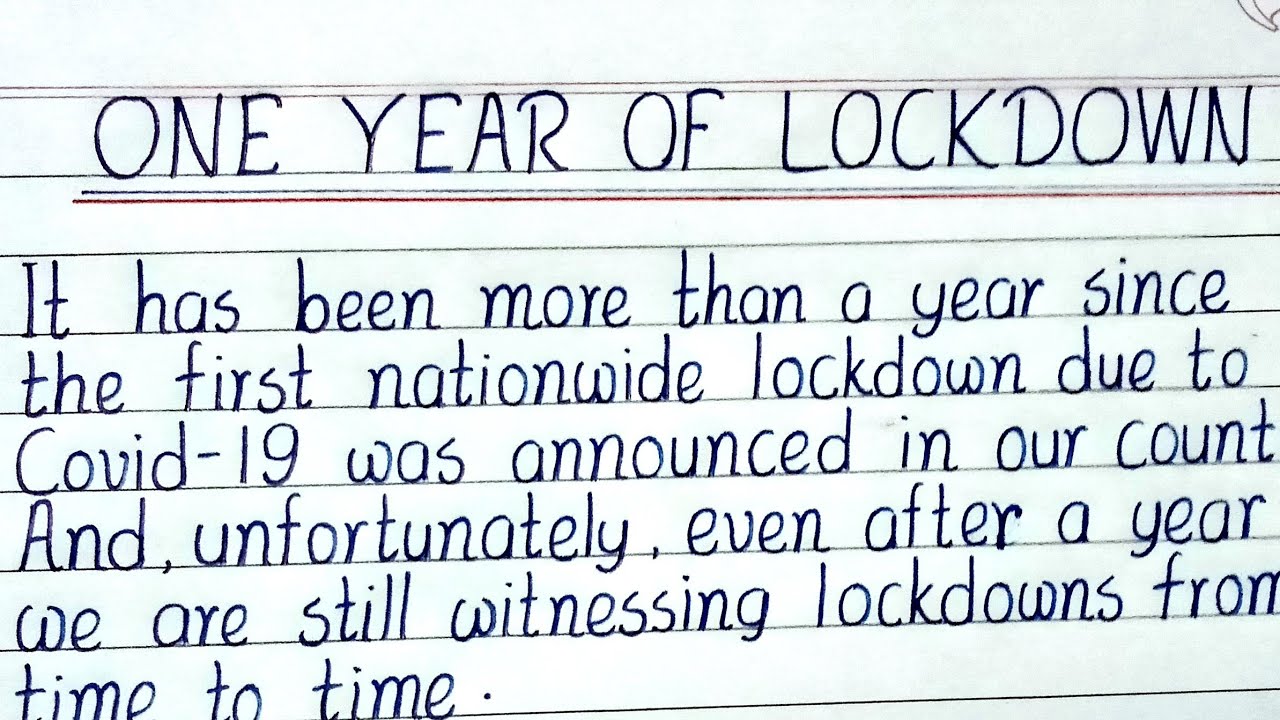 ONE YEAR OF LOCKDOWN
It has been more than a year since
the first nationwide lockdown due to
Covid-19 was announced in our count
And, unfortunately, even after a year
we are still witnessing lockdowns from
time to time.